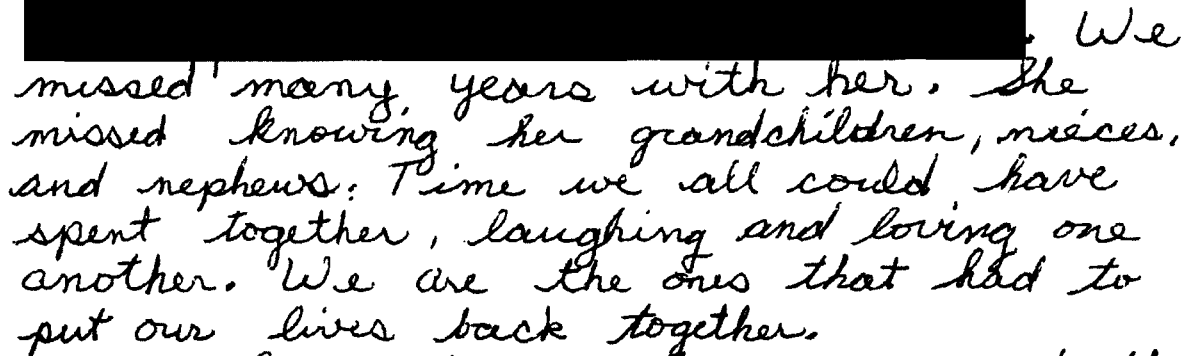 . We
missed many years with her. She
missed knowing her grandchildren, nieces,
and nephews. Time we all could have
spent together, laughing and loving one
another. We are the ones that had to
put our lives back together.